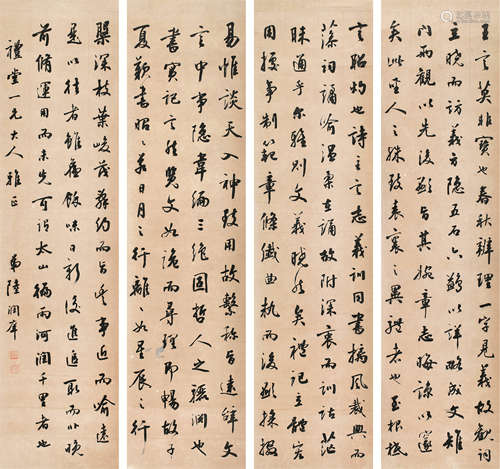 王言莫非寶也春秋辨理一字見義故觀詞
立曉而訪義方隱五石六鷁以詳略成文雉
門兩觀以先後顯旨其婉章志晦諒以邃
矣此聖人之殊致表裏之異體者也至根柢
言昭灼也詩主言志義訓同書摛風裁興而
藻詞譎喻溫柔在誦故附深衷而訓詁茫
昧通乎爾雅則文義曉然矣禮記立體宏
用據事制範章條纖曲執而後顯採掇
易惟談天入神致用故繫稱旨遠辭文
言中事隱韋編三絕固哲人之驪淵也
書實記言然覽文如詭而尋理即暢故子
夏歎書昭昭若日月之行離離如星辰之行
槃深枝葉峻茂辭約而旨豐事近而喻遠
是以往者雖舊餘味日新後進追取而非晚
前脩運用而未先可謂太山徧雨河潤千里者也
禮堂一兄大人雅正 弟陸潤庠